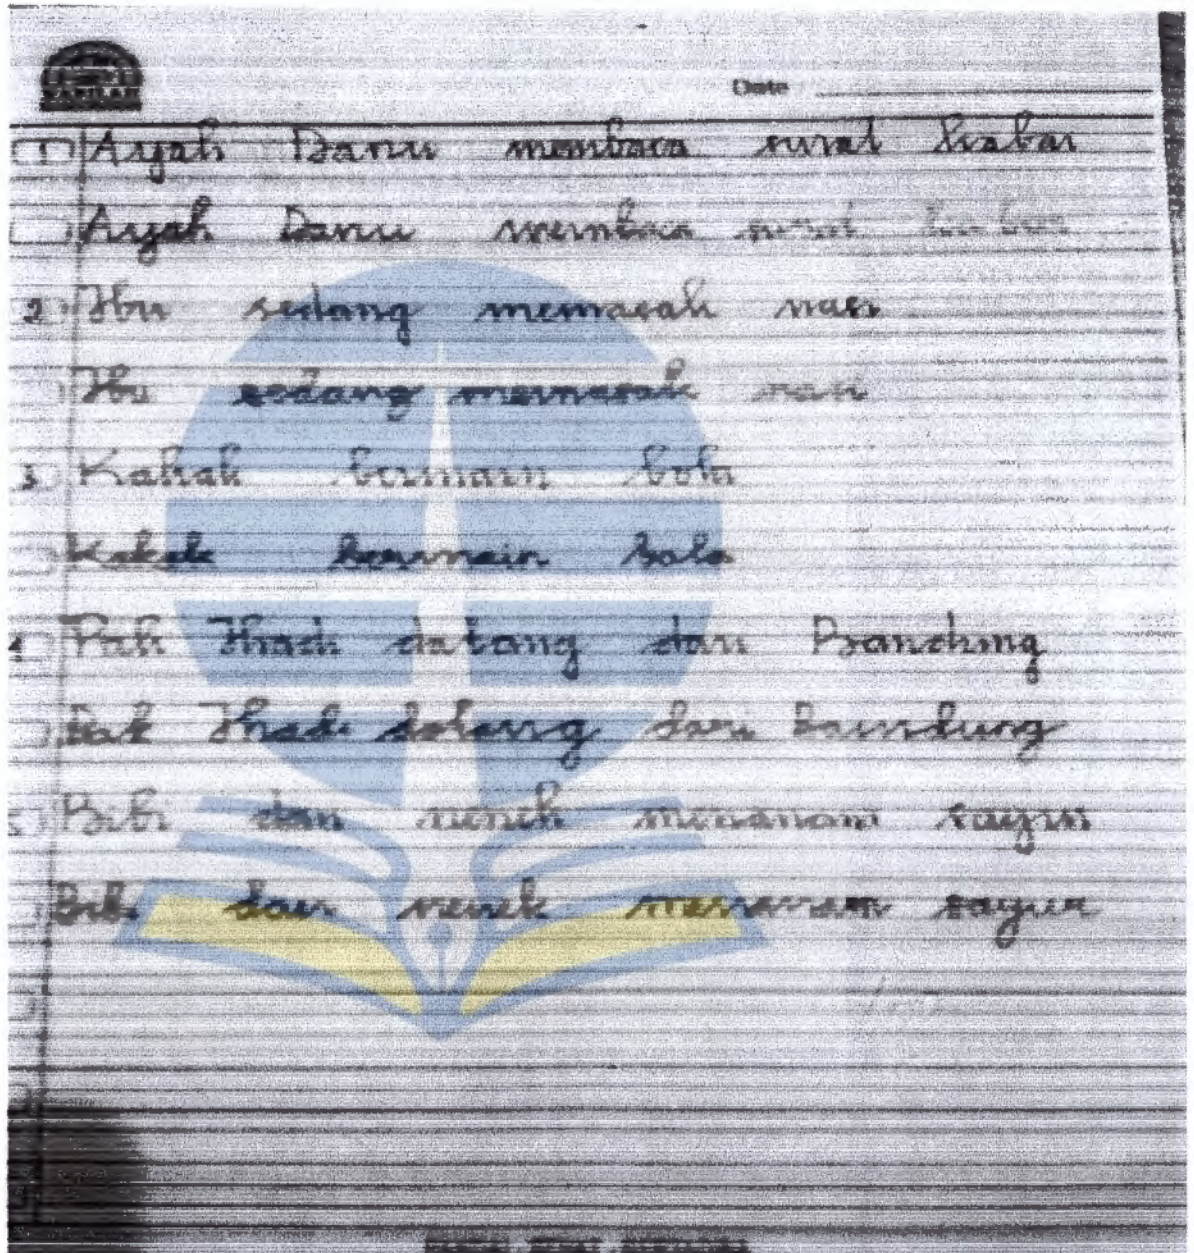 Date
1 Ayah Danu membaca surat kabar
Ayah Danu membaca surat kabar
2 Ibu sedang memasak nasi
Ibu sedang memasak nasi
3 Kakak bermain bola
Kakak bermain bola
4 Pak Ihadi datang dari Bandung
Pak Ihadi datang dari Bandung
5 Bibi dan nenek menanam sayur
Bibi dan nenek menanam sayur